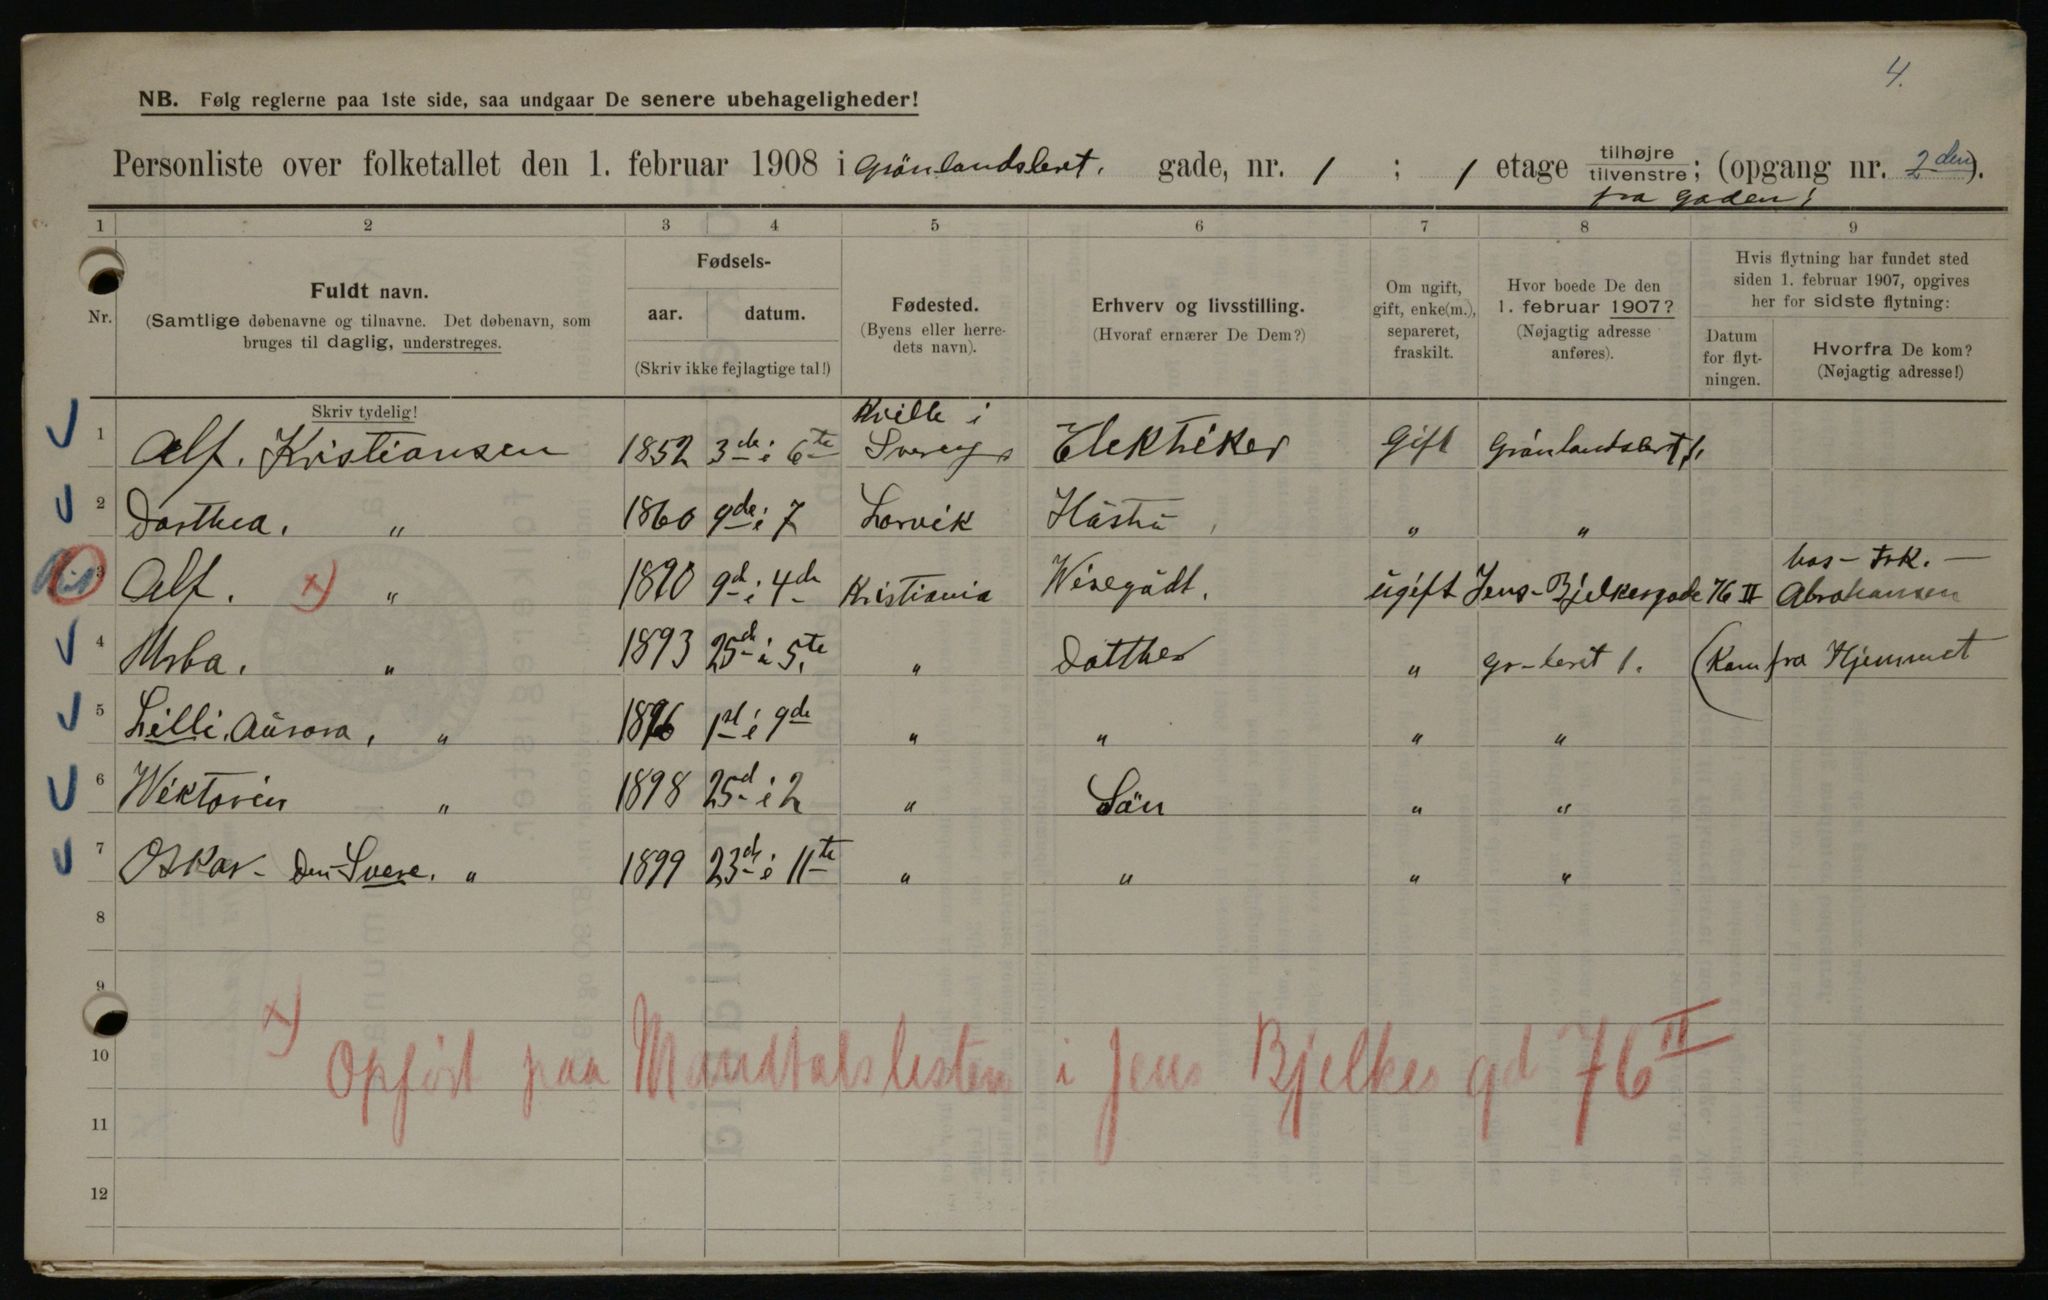 4.
NB. Følg reglerne paa 1ste side, saa undgaar De senere ubehageligheder!
Personliste over folketallet den 1. februar 1908 i Grönlandsleret. gade, nr. 1 ; 1 etage tilhøjre tilvenstre; (opgang nr. 2den).
fra gaden!
1 2 3 4 5 6 7 8 9
Nr.
Fuldt navn.
(Samtlige døbenavne og tilnavne. Det døbenavn, som
bruges til daglig, understreges.
Fødsels-
aar. datum.
(Skriv ikke fejlagtige tal!)
Fødested.
(Byens eller herre-
dets navn).
Erhverv og livsstilling.
(Hvoraf ernærer De Dem?)
Om ugift,
gift, enke(m.),
separeret,
fraskilt.
Hvor boede De den
1. februar 1907?
(Nøjagtig adresse
anføres).
Hvis flytning har fundet sted
siden 1. februar 1907, opgives
her for sidste flytning:
Datum
for flyt-
ningen.
Hvorfra De kom?
(Nøjagtig adresse!)
Skriv tydelig!
Kville i
1 Alf. Kristiansen 1852 3de i 6te Sverige Elektriker Gift Grönlandsleret 1.
2 Dorthea. " 1860 9de i 7 Larvik Hüstrü " "
hos Frk.
3 Alf. x) " 1890 9d i 4de Kristiania Wisegüdt. ügift Jens-Bjelkesgade 76 II Abrahamsen
4 " 1893 25d i 5te " Datther " Gr-leret 1. (Kom fra Hjemmet
5 Lilli. Aürora, " 1896 1st i 9de " " " "
6 Wiktorin " 1898 25d i 2 " Sön " "
7 Oskar- Den-Svere. " 1899 23d i 11te " " " "
8
9
10
11
12
x) Opført paa Mandtalslisten i Jens Bjelkes gd 76 II